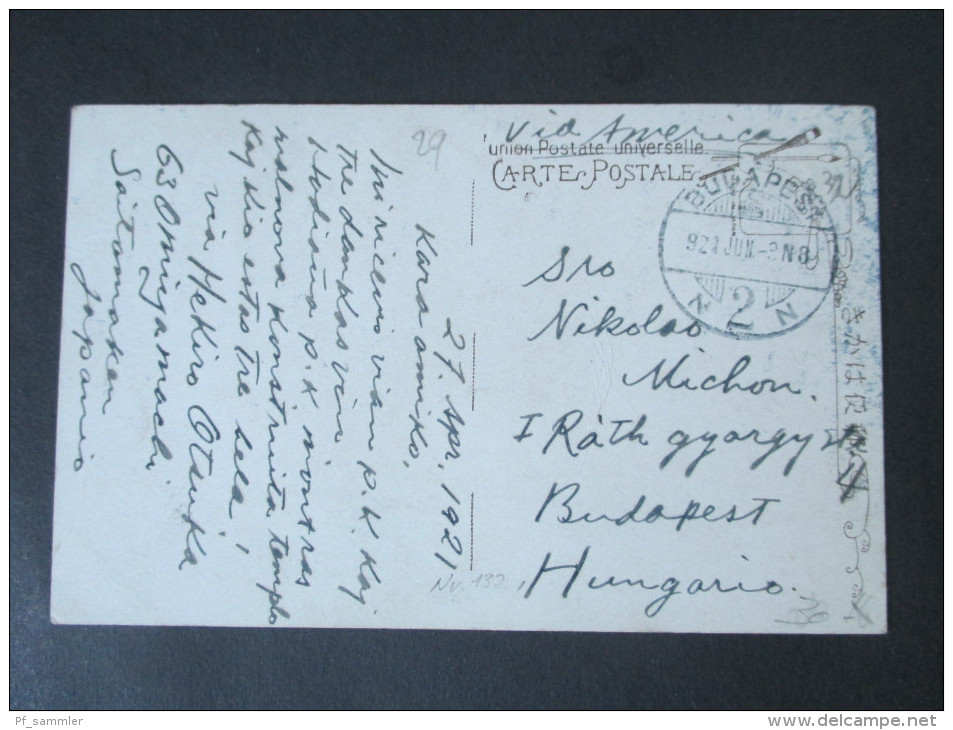 Via America
union Postale universelle
CARTE POSTALE
BUDAPEST
921 JUN
N 2 N
29
27. Apr. 1921
Kara amiko,
Mi ricevis vian p.k. kaj
tre dankas vin
Hodiaŭa p.k. montras
malnova konstruita templo
kaj tio estas tre bela,
via Hekiro Otsuka
630 Omiyamachi
Saitamaken
Japanio
Sro
Nikolao
Michon.
I Ráth györgy
Budapest
Hungario.
Nv. 132
Pf_sammler
www.delcampe.net